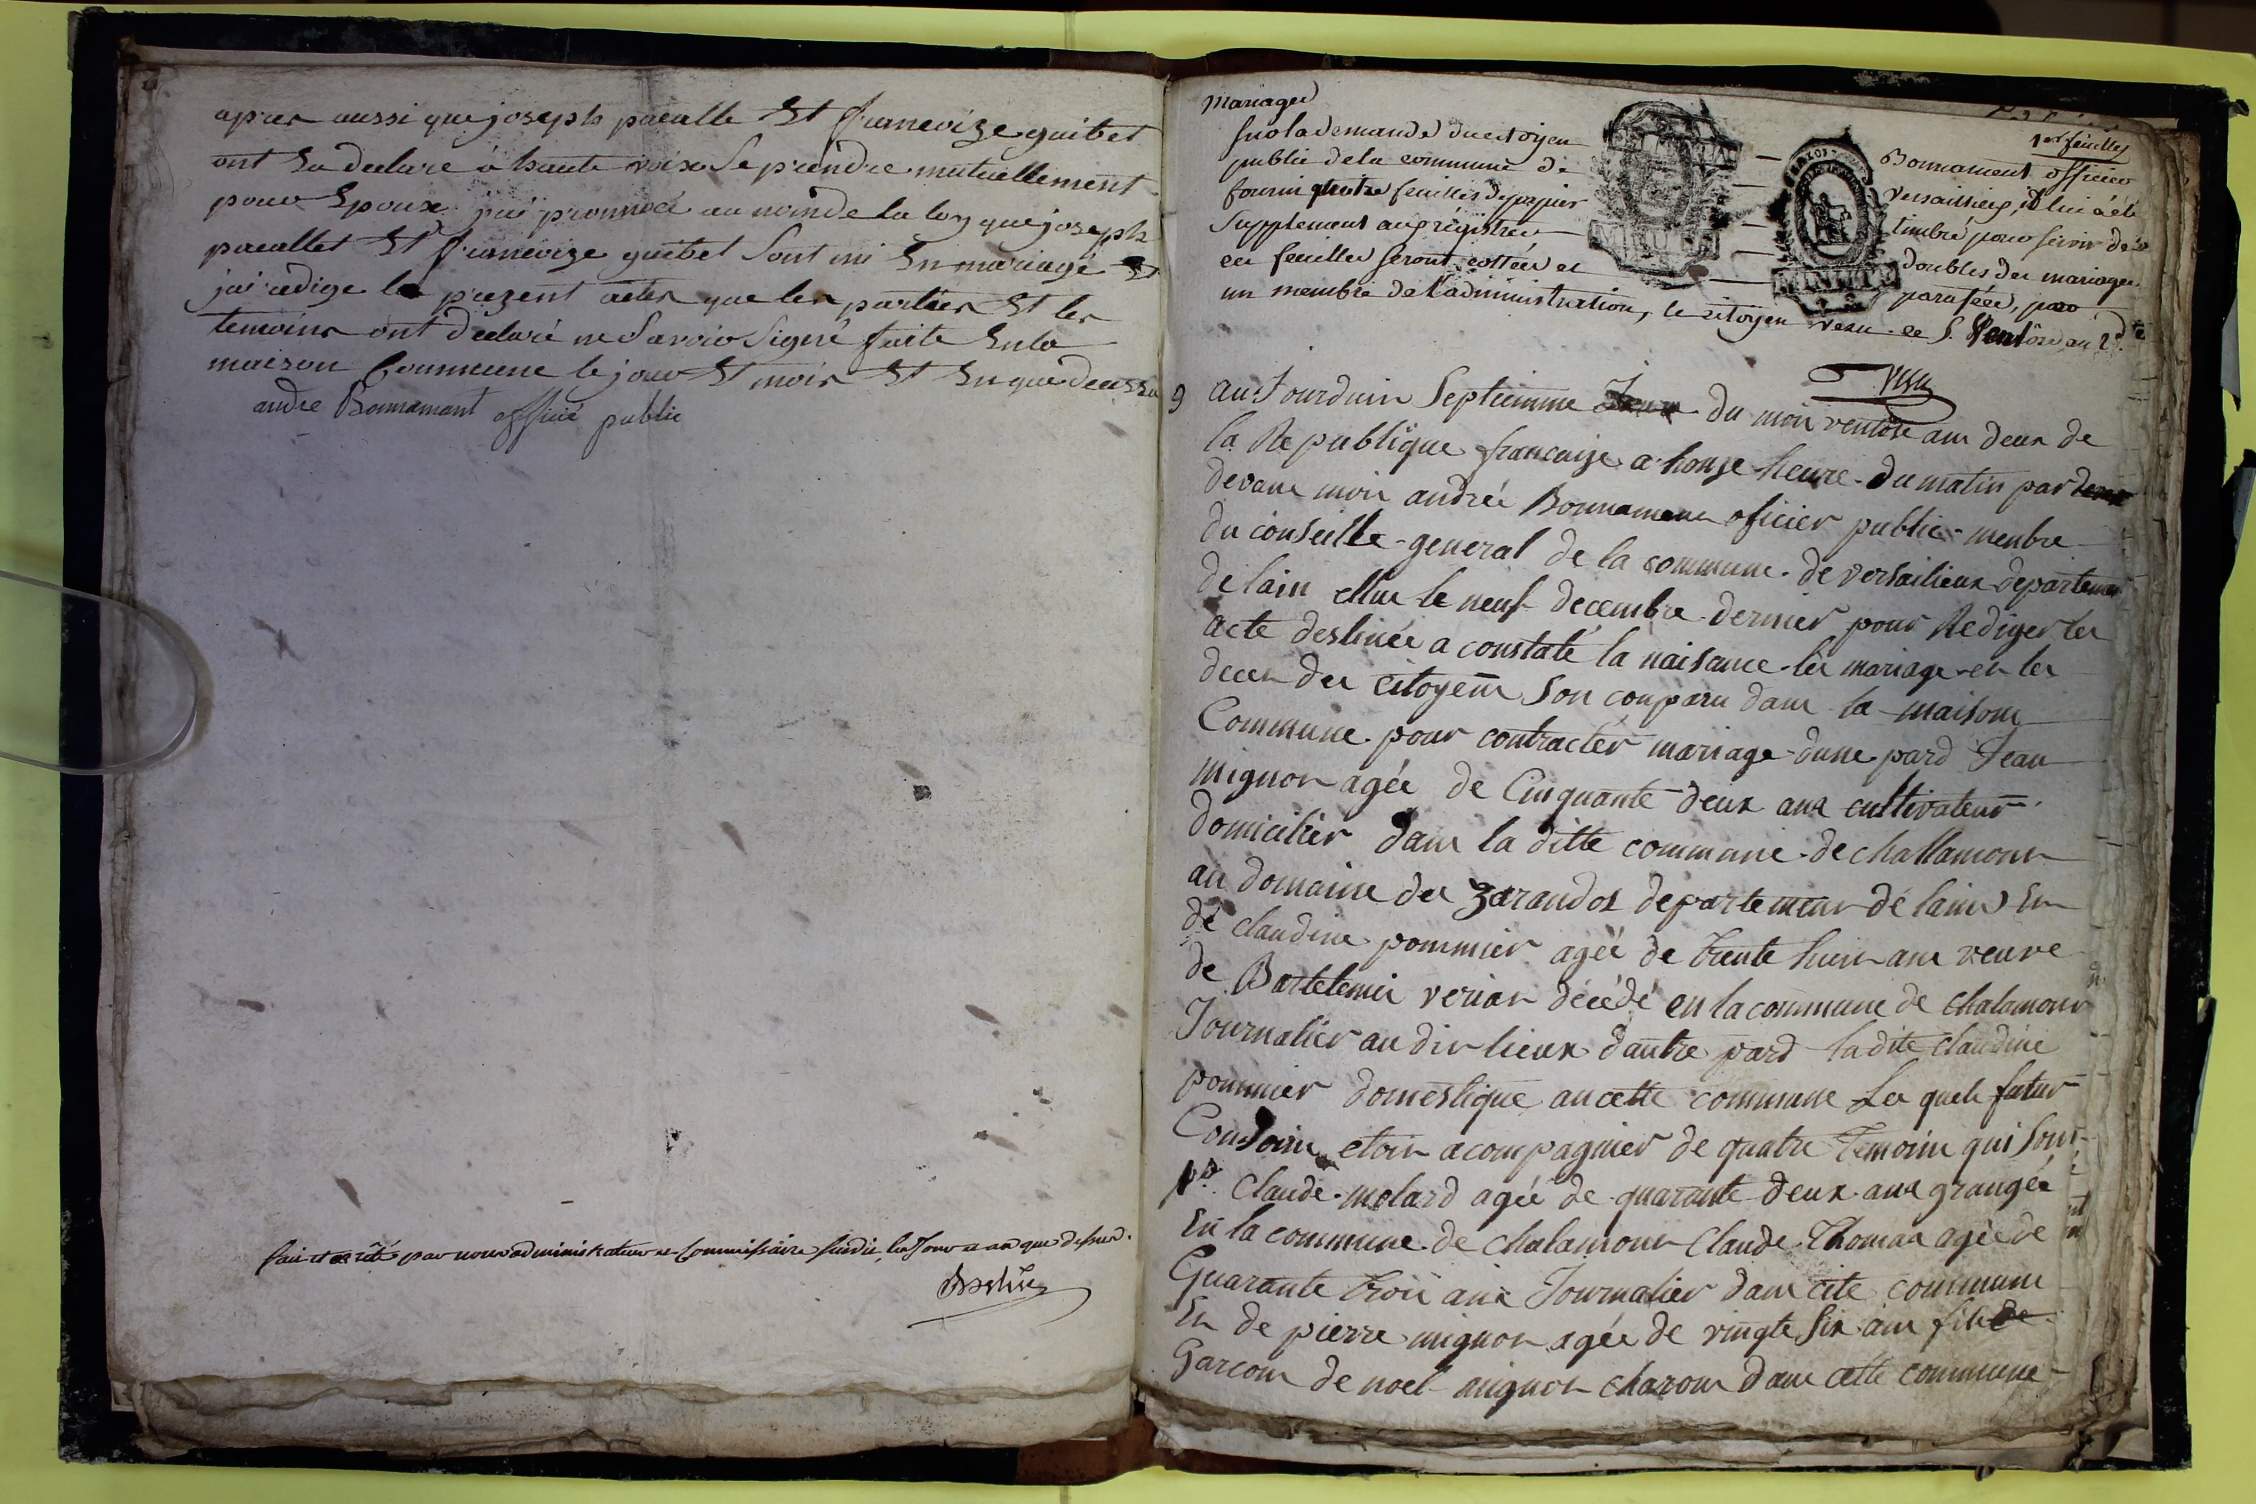 apres aussi que joseph pacalle Et francoize guibet
ont Eu declare à haute voix Se prendre mutuellement
pour Epoux jai prononcé au nom de la loy que joseph
pacallet Et francoize guibet Sont uni En mariage Et
jai redige le prezent actes que les parties Et les
temoins ont declaré ne Savoir Signé fait En la
maison Commune le jour Et mois Et En que dessu
andre Bonnamant officié public
fait et arrêté par nous administrateur et Commissaire susdit, les Jour et an que dessus.
mariages
1er feuillet
Sur la demande du citoyen Bonnament officier
public de la commune de Versailleux, il lui a été
fourni quatre feuilles de papier timbré pour servir de
Supplement au régistre doubles des mariages
ces feuilles seront cottées et parafées, par
un membre de l'administration, le citoyen veau ce 5. Ventôse an 2d
MINUTE
MINUTE
9 aujourduin Septiemme du moi ventose ans deux de
la Republique francaize a honze heure du matin par
devant moi andrée Bonnament oficier public menbre
du conseille general de la commune de versailieux departement
de lain ellue le neuf decembre dernier pour Rediger les
acte destinée a constaté la naisance les mariage et les
deces des citoyens son conparu dans la maison
Commune pour contracter mariage dune pard Jean
mignon agée de Cinquante deux ans cultivateur
domicilier dans la ditte commune de challamont
au domaine des zarandos departement de lain En
de claudine pommier agée de trente huit ans veuve
de Bartelemi verian décédé en la commune de chalamont
Journalier au dit lieux dautre pard ladite claudine
pommier domestique an cette commune Les quels futur
Conjoins etoit acompagnier de quatre temoins qui sont
1er Claude molard agée de quarante deux ans grangée
En la commune de chalamont Claude Thomas agée de
Quarante trois ans Journalier dans cite commune
En de pierre mignon agée de vingte six ans fils
Garcon de noel mignon charon dans cette commune